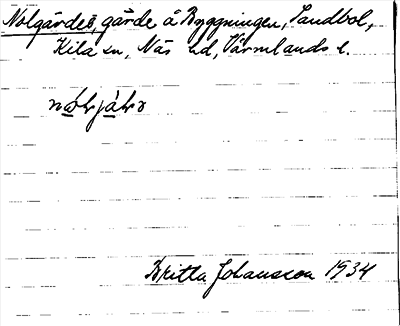 Nolgärdet, gärde å Byggningen, Sandbol,
Kila sn, Näs hd, Värmlands l.
Britta Johansson 1934